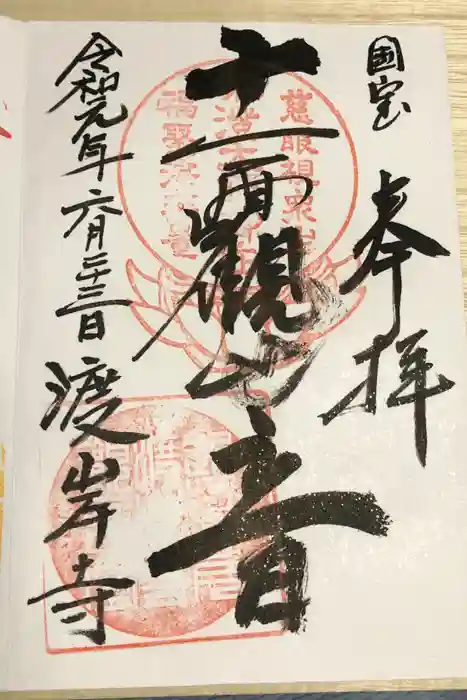 国宝
奉拝
十一面觀世音
令和元年六月二十三日
渡岸寺
慈眼視衆生
福聚海無量